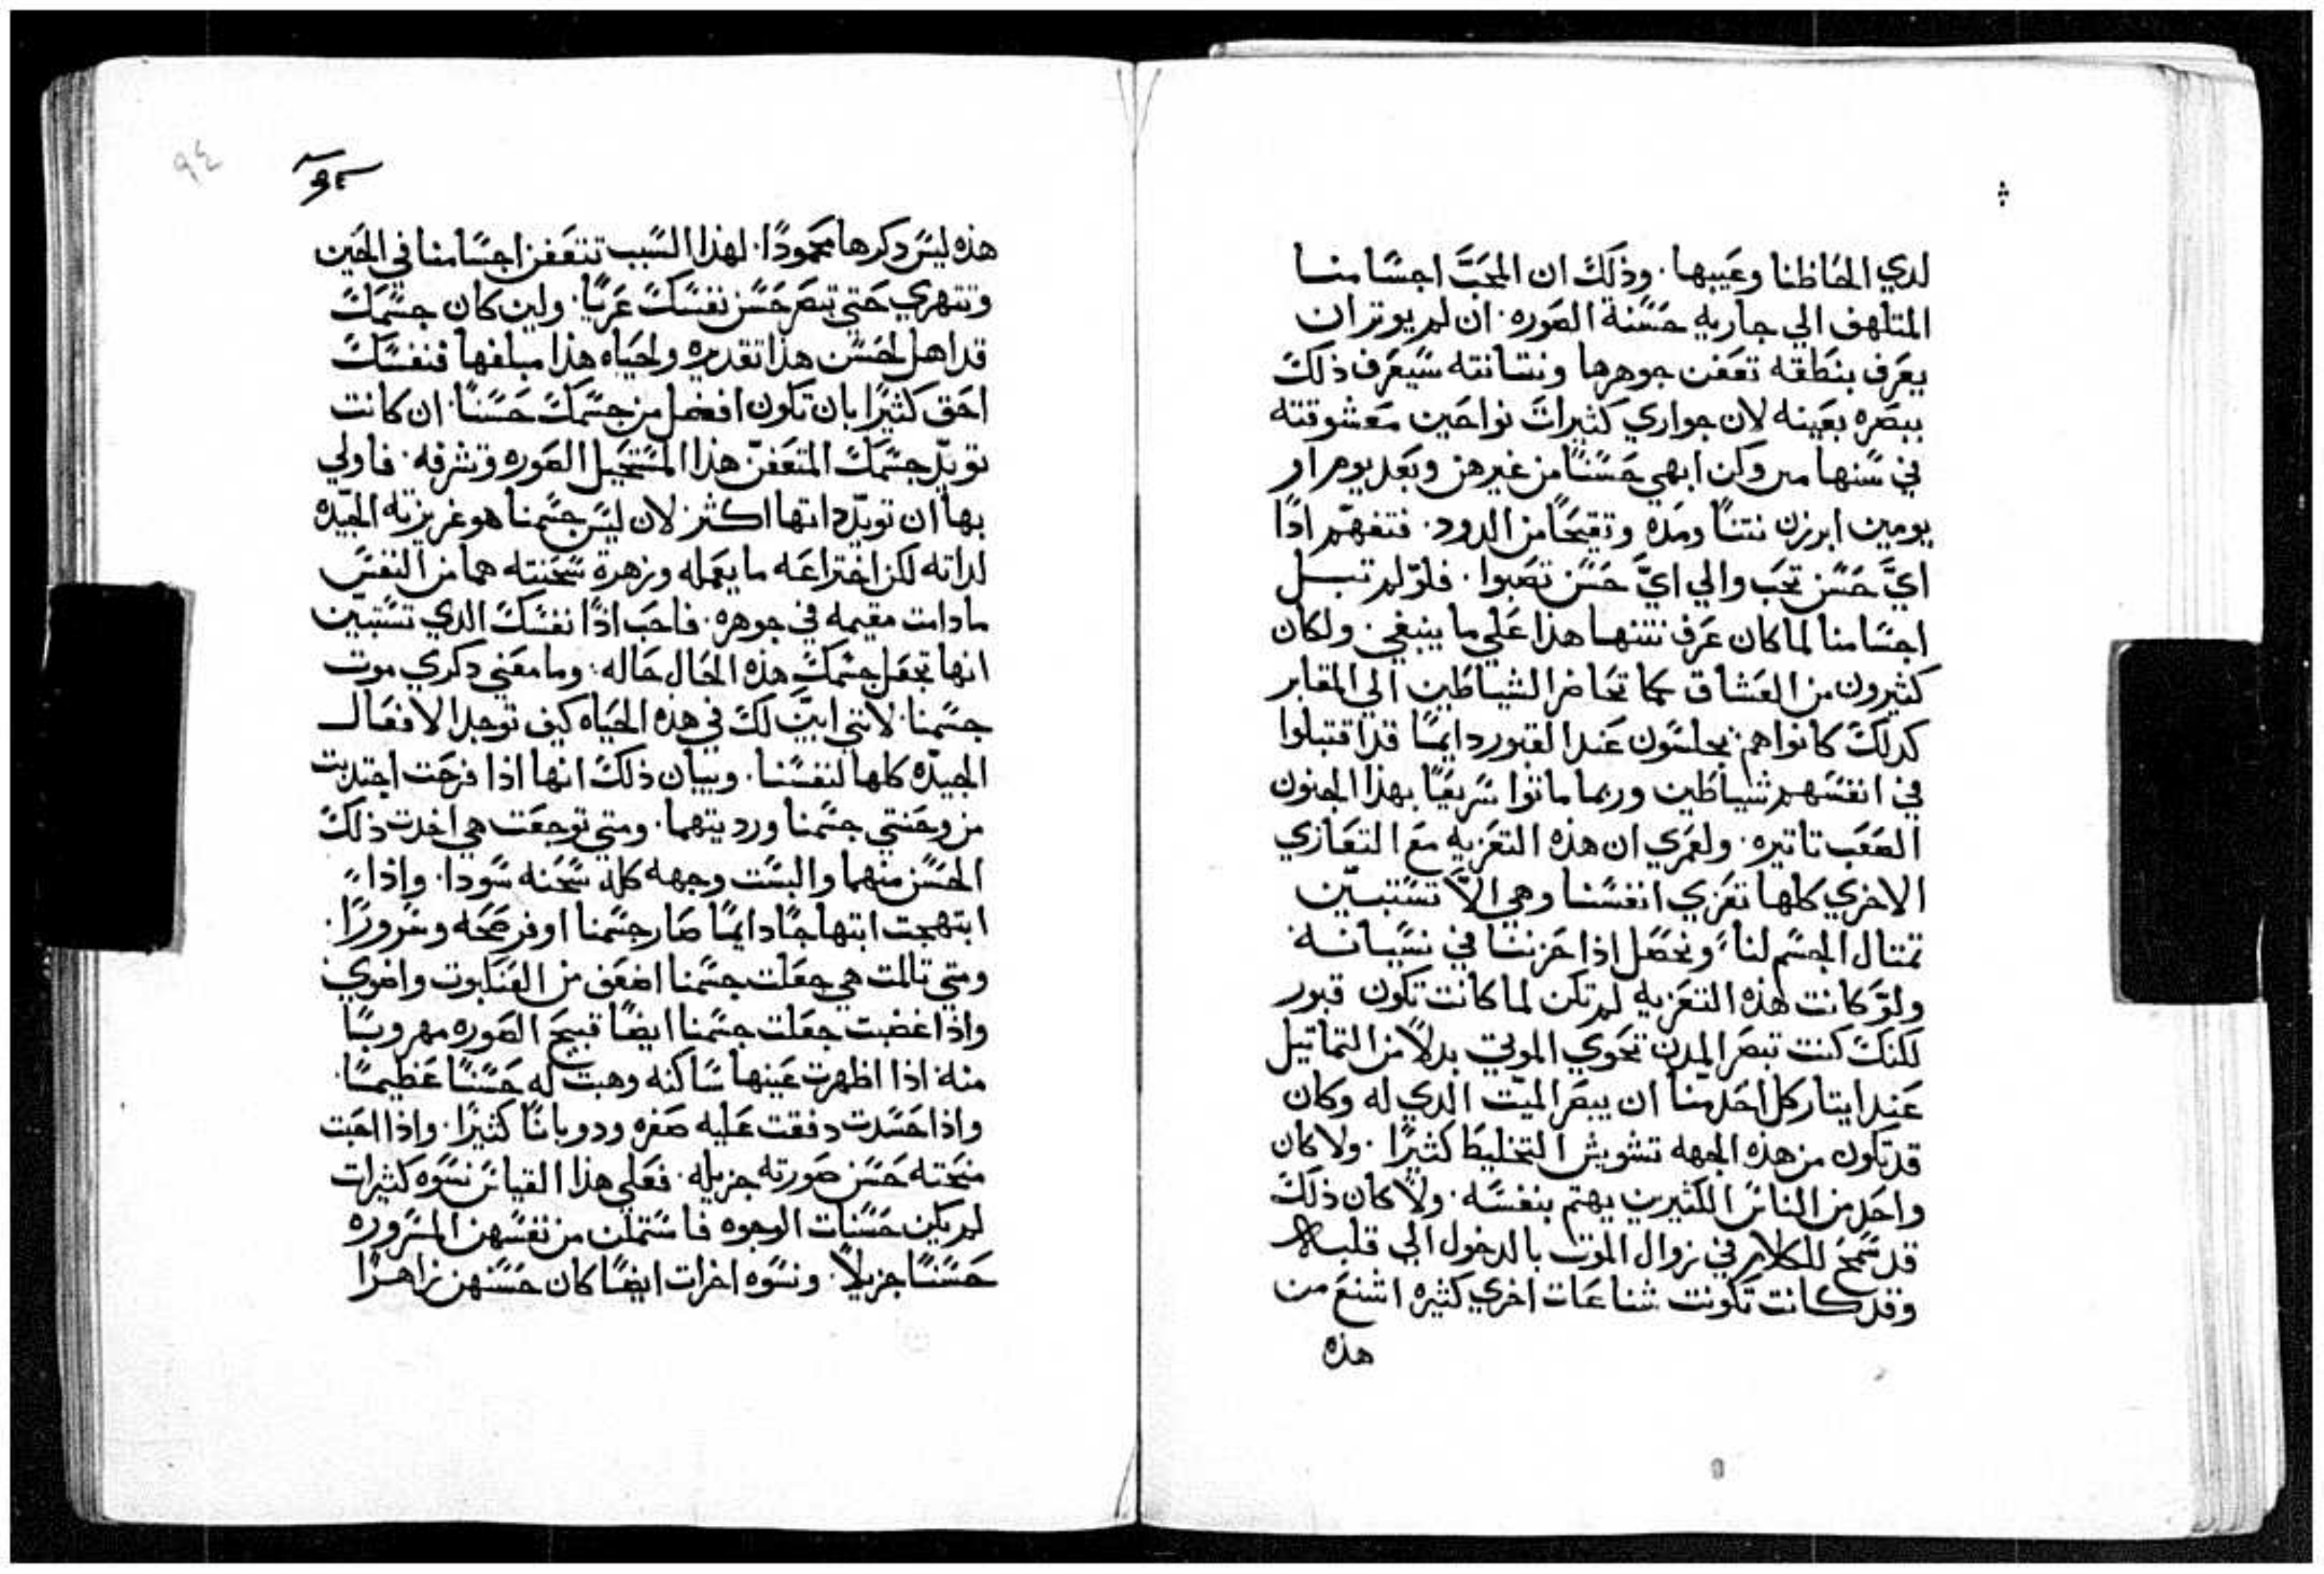 لدي الحاظنا وعيبها. وذلك ان المحب اجسامنا
المتلهف الي جاريه حسنة الصوره. ان لم يوتر ان
يعرف بنطقه تعفن جوهرها ونتانته سيعرف ذلك
ببصره بعينه لان جواري كثيرات نواحين معشوقته
في سنها وكن ابهي حسنًا من غيرهن وبعد يوم او
يومين ابرزن نتنًا ومدة وتقيحًا من الدود. فتفهم ادًا
ايَّ حسن تحب والي ايَّ حسن تصبوا. فلو لم تبل
اجسامنا لما كان عرف نتنها هذا علي ما ينبغي. ولكان
كثيرون من العشاق كما تحاضر الشياطين الي المقابر
كدلك كانوا هم يجلسون عند القبور دايمًا قد اقتبلوا
في انفسهم شياطين وربما ماتوا سريعًا بهذا الجنون
الصعب تاتيره. ولعمري ان هذه التعزيه مع التعازي
الاخري كلها تعزي انفسنا وهي الاَّ تستبين
تمتال الجسم لنا ونحصل اذا حزننا في نسيانه
ولو كانت هذه التعزيه لم تكن لما كانت تكون قبور
لكنك كنت تبصر المدن تحوي الموتي بدلاً من التماتيل
عند ايتار كل احد منا ان يبصر الميت الدي له وكان
قد تكون من هذه الجهه تشويش التخليط كثيرًا. ولا كان
واحد من الناس الكثيرين يهتم بنفسه. ولا كان ذلك
قد سمح للكلام في زوال الموت بالدخول الي قلبه
وقد كانت تكونت شناعات اخري كثيره اشنع من
هذه
٩٤
٩٤
هذه ليس دكرها محمودًا. لهذا السبب تتعفن اجسامنا في الحين
وتتهري حتي تبصر حسن نفسك عريًا. ولين كان جسمك
قد اهل لحسن هذا تقديره ولحياه هذا مبلغها فنفسك
احق كثيرًا بان تكون افضل من جسمك حسنًا. ان كانت
تويّد جسمك المتعفن هذا المستحيل الصوره وتشرفه. فاولي
بها ان تويّد داتها اكثر لان ليس جسمنا هو غريزيه الجيّده
لداته لكن اختراعه ما يعمله وزهرة سحنته هما من النفس
ما دامت مقيمه في جوهره. فاحب ادًا نفسك الدي تستبين
انها تجعل جسمك هذه الحال حاله. وما معني دكري موت
جسمنا. لانني ابيّن لك في هده الحياه كيف توجد الافعال
الجيدّه كلها لنفسنا. وبيان ذلك انها اذا فرحت اجتدبت
من وجنتي جسمنا ورديتهما. ومتي توجعت هي اخدت ذلك
الحسن منهما والبست وجهه كله سحنه سودا. واذا
ابتهجت ابتهاجًا دايمًا صار جسمنا اوفر صحه وسرورًا.
ومتي تالمت هي جعلت جسمنا اضعف من العنكبوت واضوي
واذا غضبت جعلت جسمنا ايضًا قبيح الصوره مهروبًا
منه. اذا اظهرت عينها ساكنه وهبت له حسنًا عظيمًا.
واذا حسدت دفقت عليه صفره ودوبانًا كثيرًا. واذا احبت
منحته حسن صورته جزيله. فعلي هذا القياس نسوه كثيرات
لم يكن حسنات الوجوه فاستملن من نفسهن المسروره
حسنًا جزيلاً. ونسوه اخرات ايضًا كان حسنهن زاهرًا